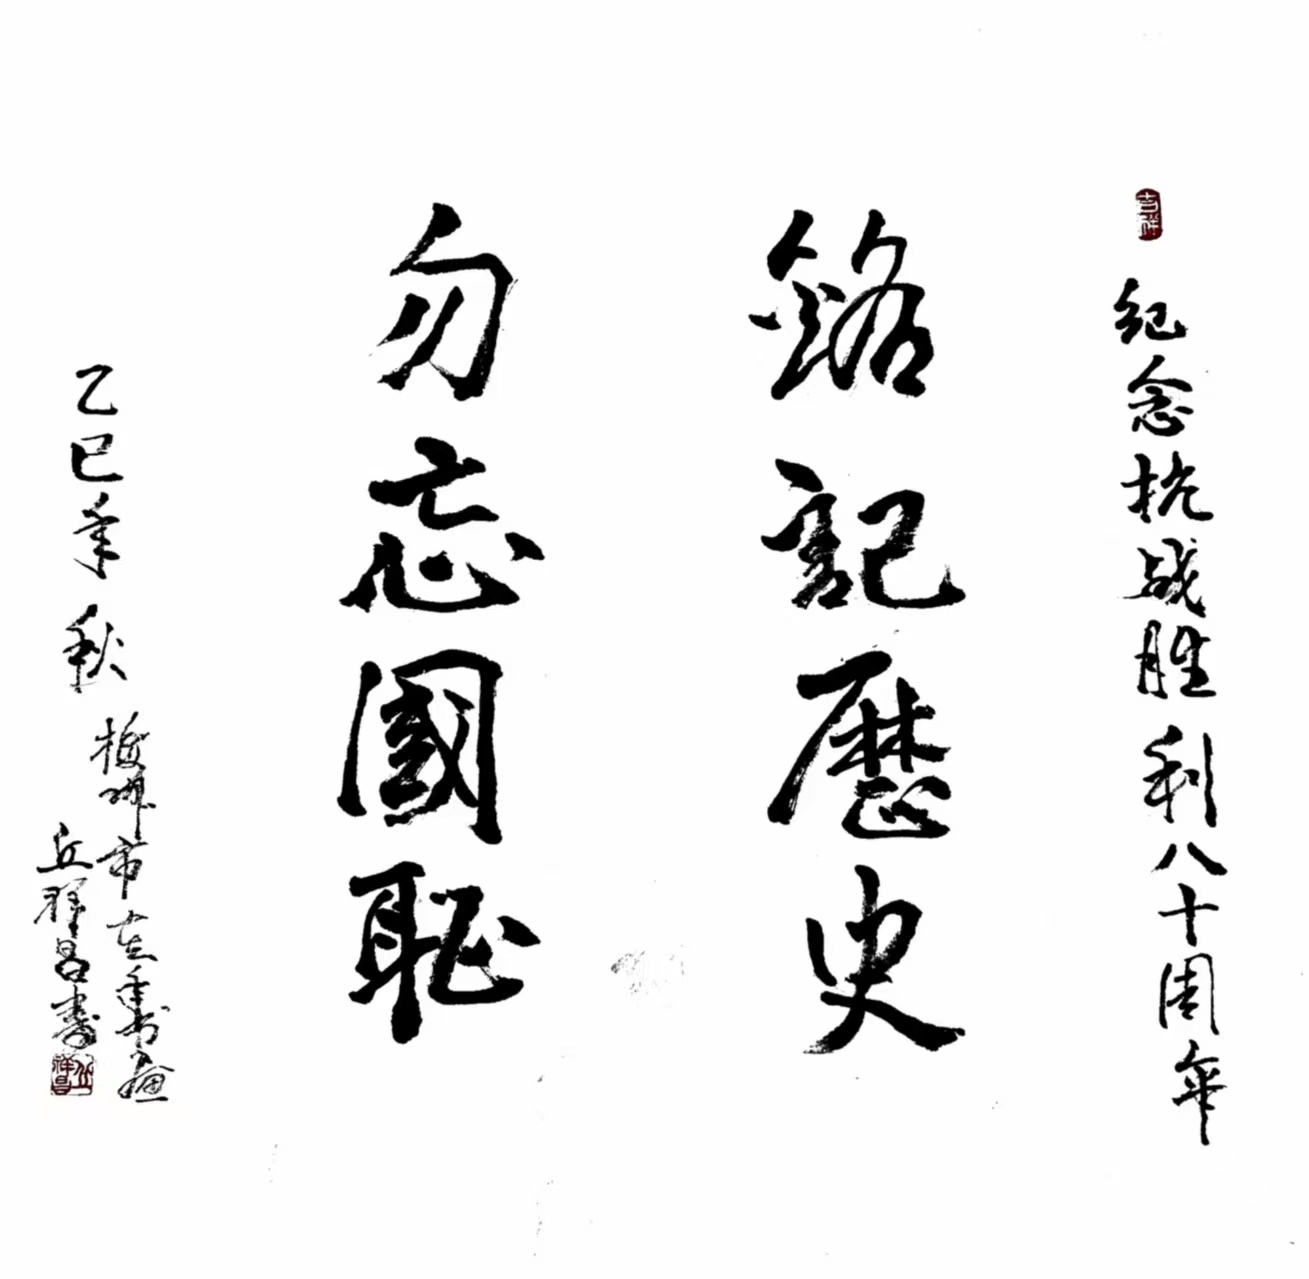 吉祥
纪念抗战胜利八十周年
銘記歷史
勿忘國恥
乙巳年秋
梅州市老年书画
丘祥昌書
丘祥昌